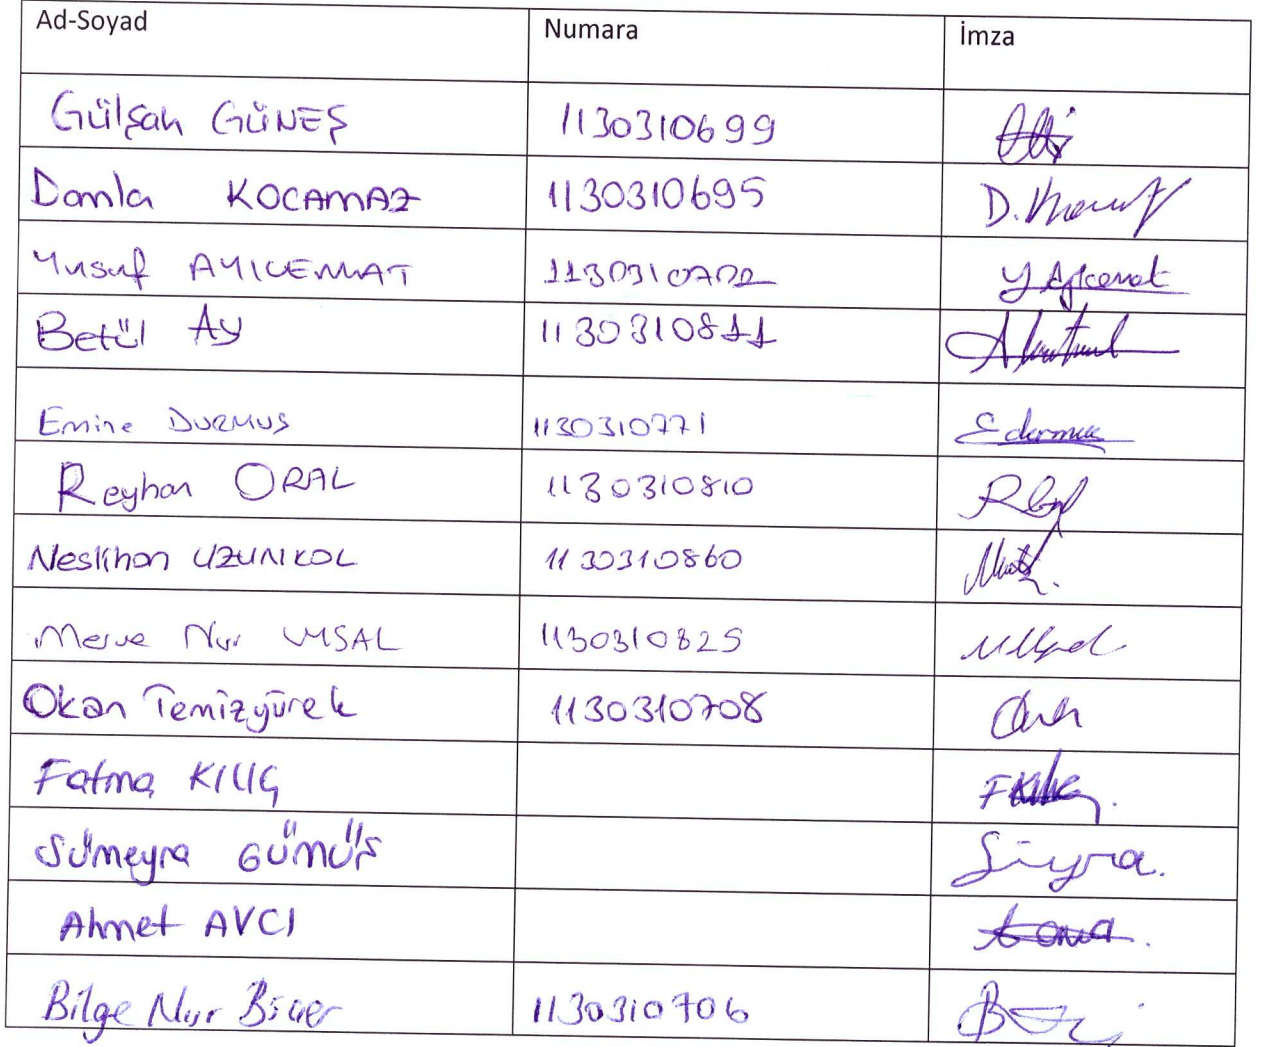 Ad-Soyad Numara İmza
Gülşah GÜNEŞ 1130310699
Damla KOCAMAZ 1130310695
Yusuf AYICEMAT 1130310722 Y Aycemat
Betül Ay 1130310811
Emine DURMUS 1130310771 E durmus
Reyhan ORAL 1130310810
Neslihan UZUNKOL 1130310860
Merve Nur UYSAL 1130310825
Okan Temizyürek 1130310708
Fatma KILIÇ
Sümeyra GÜMÜŞ
Ahmet AVCI
Bilge Nur Biçer 1130310706